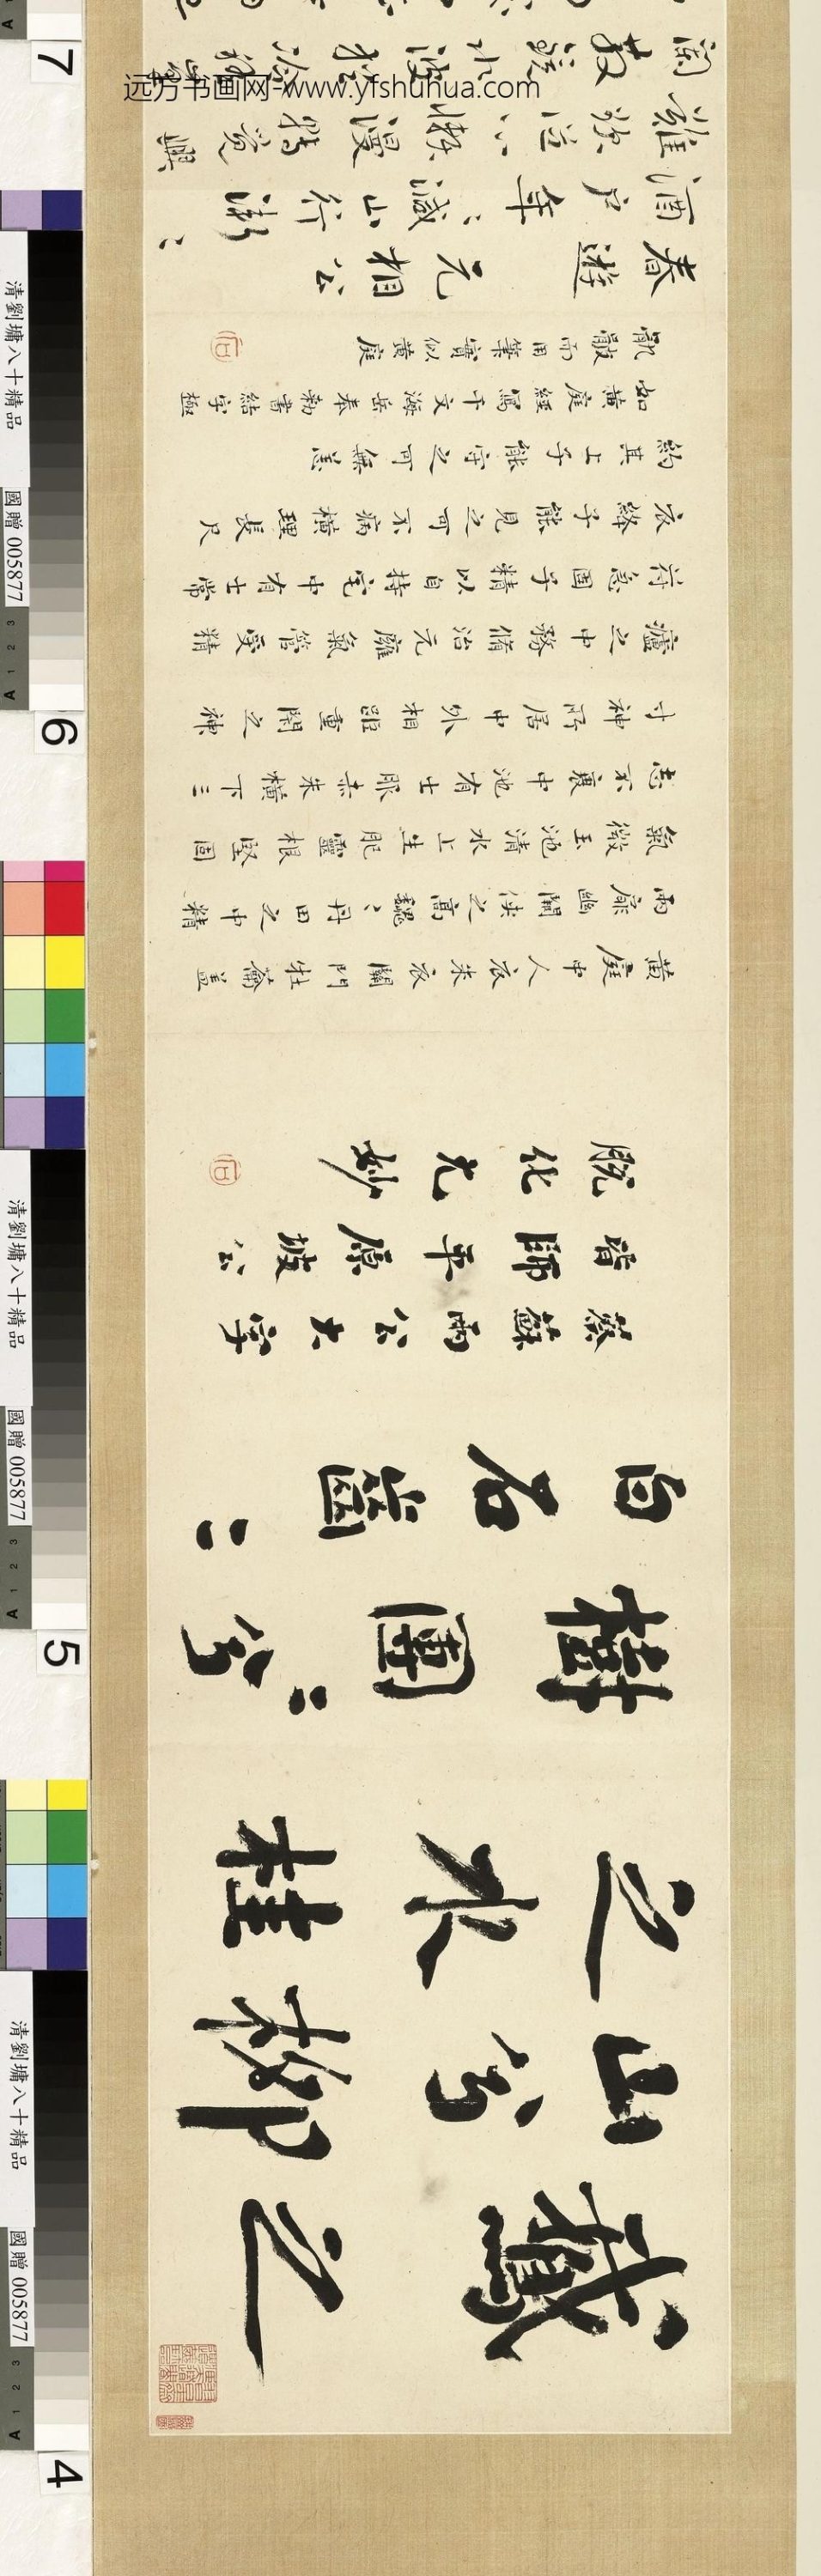 鵞之
山兮柳
之水桂
樹團〻兮
白石齒〻
蔡蘇兩公大字
皆師平原坡公
脫化尤妙
黃庭中人衣朱衣關門牡蘥蓋
兩扉幽關俠之高巍〻丹田之中精
氣微玉池清水上生肥靈根堅固
志不衰中池有士服赤朱橫下三
寸神所居中外相距重閉之神
廬之中務脩治元廱氣管受精
符急固子精以自持宅中有士常
衣絳子能見之可不病橫理長尺
約其上子能守之可無恙
如黃庭經寫千文海岳奉勅書結字極
而用筆實似黃庭
春遊 元相公
酒戶年〻減山行漸〻
難欲從心懶漫轉覺興
闌散鏡水波猶冷稽
远方书画网-www.yfshuhua.com
清劉墉八十精品
國贈 005877
A 1 2 3
清劉墉八十精品
國贈 005877
A 1 2 3
清劉墉八十精品
國贈 005877
A 1 2 3
4
5
6
7